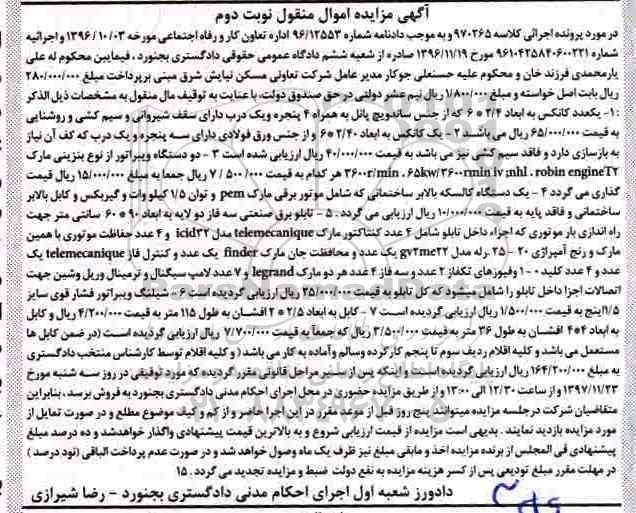 آگهی مزایده اموال منقول نوبت دوم
در مورد پرونده اجرائی کلاسه ۹۷۰۲۶۵ و به موجب دادنامه شماره ۹۶/۱۲۵۵۳ اداره تعاون کار و رفاه اجتماعی مورخه ۱۳۹۶/۱۰/۰۳ و اجرائیه
شماره ۹۶۱۰۴۲۵۸۴۰۶۰۰۲۲۱ مورخ ۱۳۹۶/۱۱/۱۹ صادره از شعبه ششم دادگاه عمومی حقوقی دادگستری بجنورد ، فیمابین محکوم له علی
یارمحمدی فرزند خان و محکوم علیه حسنعلی جوکار مدیر عامل شرکت تعاونی مسکن نیایش شرق مبنی برپرداخت مبلغ ۲۸۰/۰۰۰/۰۰۰
ریال بابت اصل خواسته و مبلغ ۱/۸۰۰/۰۰۰ ریال نیم عشر دولتی در حق صندوق دولت، با عنایت به توقیف مال منقول به مشخصات ذیل الذکر
:۱- یکعدد کانکس به ابعاد ۲/۴ * ۶ که از جنس ساندویچ پانل به همراه ۴ پنجره ویک درب دارای سقف شیروانی و سیم کشی و روشنایی
به قیمت ۶۵/۰۰۰/۰۰۰ ریال می باشد ۲ - یک کانکس به ابعاد ۲/۴۰ * ۶ و از جنس ورق فولادی دارای سه پنجره و یک درب که کف آن نیاز
به بازسازی دارد و فاقد سیم کشی نیز می باشد به قیمت ۴۰/۰۰۰/۰۰۰ ریال ارزیابی شده است ۳ - دو دستگاه ویبراتور از نوع بنزینی مارک
robin engineT۲ ، ۳۶۰۰r/min ، ۶۵kw/۳۶۰۰rmin iv ;nhl هر کدام به قیمت ۷/۵۰۰/۰۰۰ ریال جمعا به مبلغ ۱۵/۰۰۰/۰۰۰ ریال قیمت
گذاری می گردد ۴ - یک دستگاه کالسکه بالابر ساختمانی که شامل موتور برقی مارک pem و توان ۱/۵ کیلو وات و گیربکس و کابل بالابر
ساختمانی و فاقد پایه به قیمت ۱۰/۰۰۰/۰۰۰ ریال ارزیابی می گردد . ۵ - تابلو برق صنعتی سه فاز دو لایه به ابعاد ۹۰ * ۶۰ سانتی متر جهت
راه اندازی بار موتوری که اجزاء داخل تابلو شامل ۴ عدد کنتاکتور مارک telemecanique مدل icid۳۲ و ۴ عدد حفاظت موتوری با همین
مارک و رنج آمپراژی ۲۰ - ۲۵ ،رله مدل gv۲me۲۲ یک عدد و محافظت جان مارک finder یک عدد و کنترل فاز telemecanique یک
عدد و ۴ عدد کلید ۰-۱ وفیوزهای تکفاز ۲ عدد و سه فاز ۴ عدد هر دو مارک legrand و ۷ عدد لامپ سیگنال و ترمینال وریل وشین جهت
اتصالات اجزا داخل تابلو را شامل میشود که کل تابلو به قیمت ۲۵/۰۰۰/۰۰۰ ریال ارزیابی گردیده است ۶ - شیلنگ ویبراتور فشار قوی سایز
۱/۵اینچ به قیمت ۱/۵۰۰/۰۰۰ ریال ارزیابی گردیده است ۷ - کابل به ابعاد ۲/۵ * ۲ افشان به طول ۱۱۵ متر به قیمت ۴/۲۰۰/۰۰۰ ریال و کابل
به ابعاد ۴*۴ افشان به طول ۳۶ متر به قیمت ۳/۵۰۰/۰۰۰ ریال که جمعاً به قیمت ۷/۷۰۰/۰۰۰ ریال ارزیابی گردیده است (در ضمن کابل ها
مستعمل می باشد و کلیه اقلام ردیف سوم تا پنجم کارکرده وسالم وآماده به کار می باشد ) و کلیه اقلام توسط کارشناس منتخب دادگستری
به مبلغ ۱۶۴/۲۰۰/۰۰۰ ریال ارزیابی گردیده است و اینکه پس از سیر مراحل قانونی مقرر گردیده که مورد توقیفی در روز سه شنبه مورخ
۱۳۹۷/۱۱/۲۳ و از ساعت ۱۲/۳۰ الی ۱۳:۰۰ و از طریق مزایده حضوری در محل اجرای احکام مدنی دادگستری بجنورد به فروش برسد ، بنابراین
متقاضیان شرکت درجلسه مزایده میتوانند پنج روز قبل از موعد مقرر در این اجرا حاضر و از کم و کیف موضوع مطلع و در صورت تمایل از
مورد مزایده بازدید نمایند . بدیهی است مزایده از قیمت ارزیابی شروع و به بالاترین قیمت پیشنهادی واگذار خواهدشد و ده درصد مبلغ
پیشنهادی فی المجلس از برنده مزایده اخذ و مابقی مبلغ نیز ظرف یک ماه وصول خواهد شد و در صورت عدم پرداخت الباقی (نود درصد )
در مهلت مقرر مبلغ تودیعی پس از کسر هزینه مزایده به نفع دولت ضبط و مزایده تجدید می گردد . ۱۵
دادورز شعبه اول اجرای احکام مدنی دادگستری بجنورد - رضا شیرازی